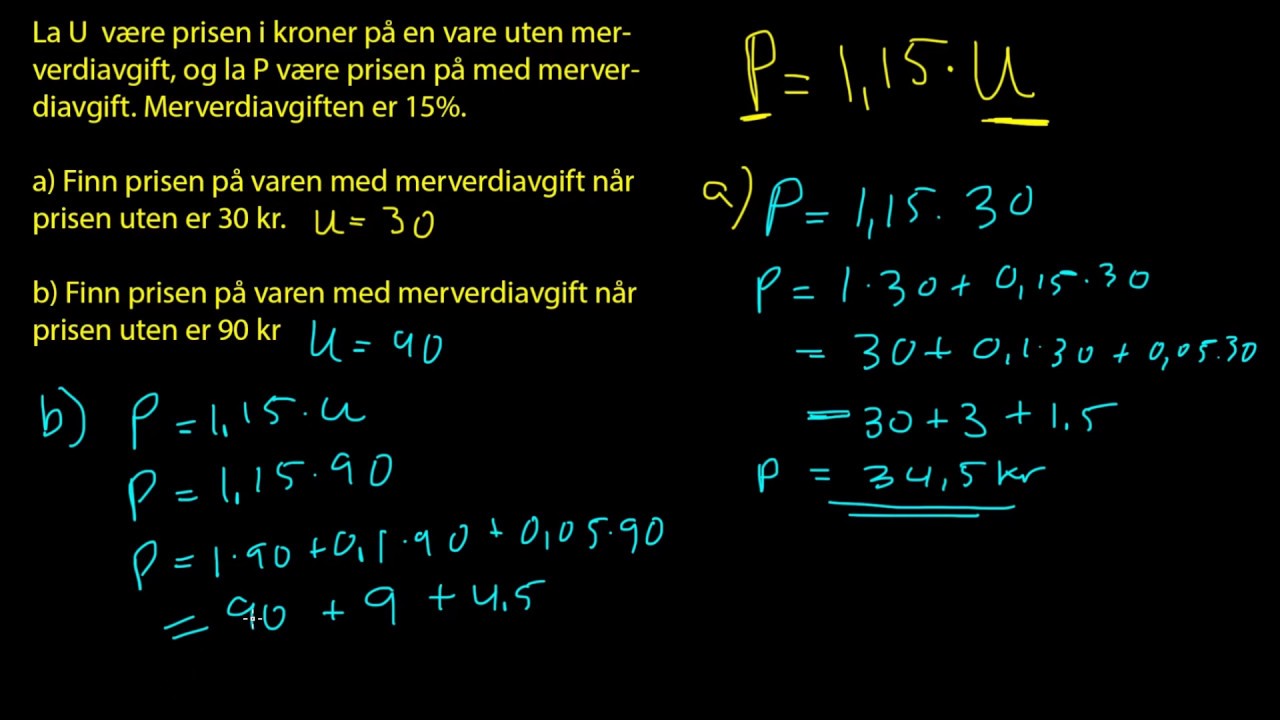 La U være prisen i kroner på en vare uten mer-
verdiavgift, og la P være prisen på med merver-
diavgift. Merverdiavgiften er 15%.
a) Finn prisen på varen med merverdiavgift når
prisen uten er 30 kr. U = 30
b) Finn prisen på varen med merverdiavgift når
prisen uten er 90 kr U = 90
b) P = 1,15 · U
P = 1,15 · 90
P = 1 · 90 + 0,1 · 90 + 0,05 · 90
= 90 + 9 + 4,5
P = 1,15 · U
a) P = 1,15 · 30
P = 1 · 30 + 0,15 · 30
= 30 + 0,1 · 30 + 0,05 · 30
= 30 + 3 + 1,5
P = 34,5 kr